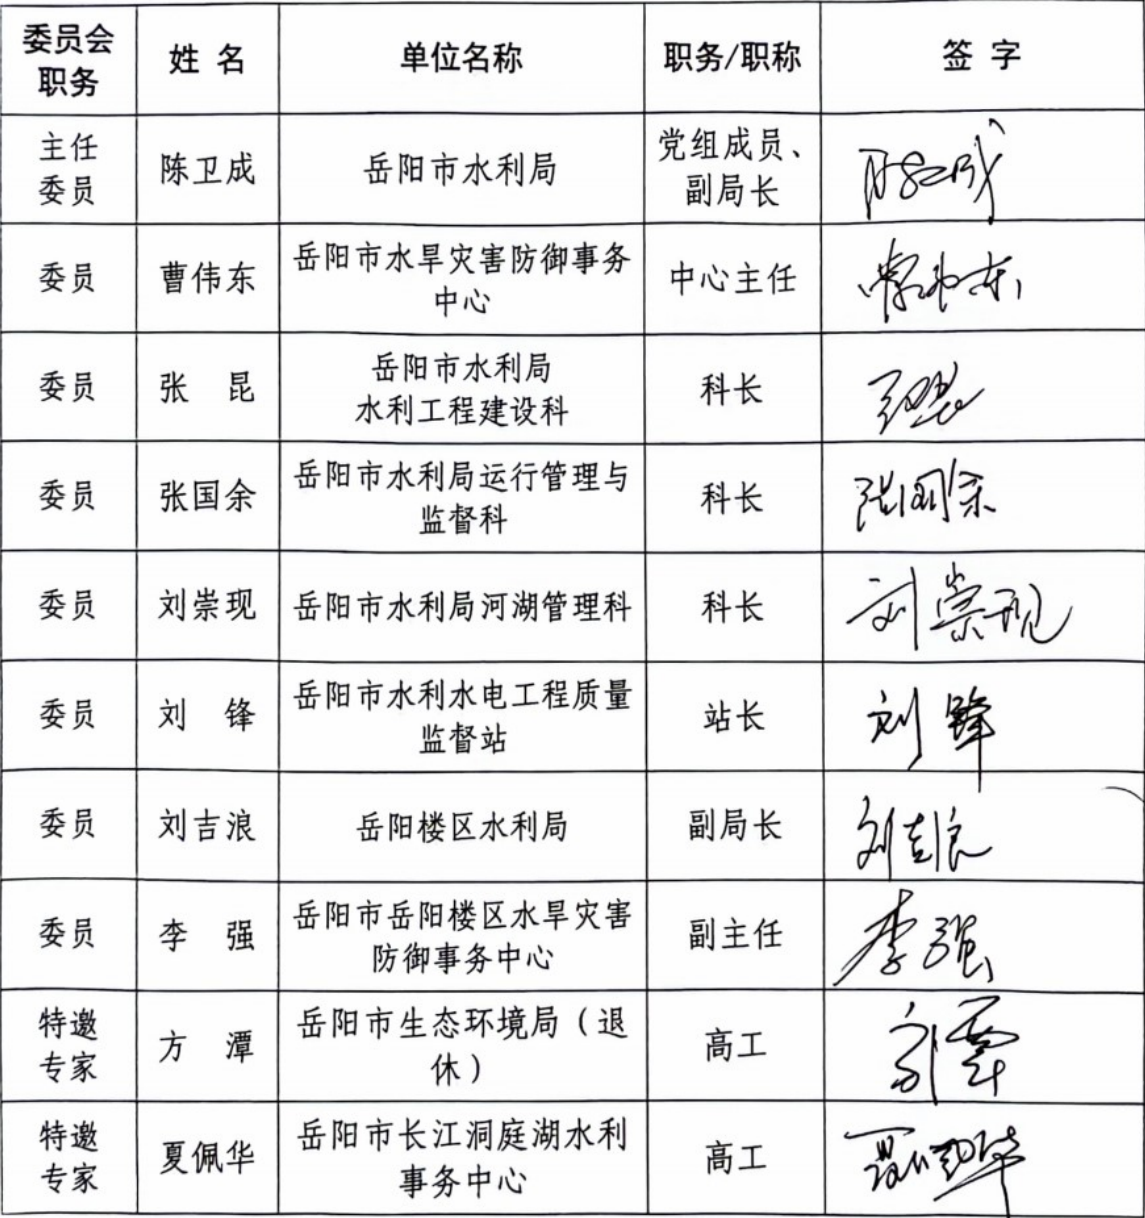 委员会
职务
姓 名
单位名称
职务/职称
签 字
主任
委员
陈卫成
岳阳市水利局
党组成员、
副局长
陈卫成
委员
曹伟东
岳阳市水旱灾害防御事务
中心
中心主任
曹伟东
委员
张 昆
岳阳市水利局
水利工程建设科
科长
张昆
委员
张国余
岳阳市水利局运行管理与
监督科
科长
张国余
委员
刘崇现
岳阳市水利局河湖管理科
科长
刘崇现
委员
刘 锋
岳阳市水利水电工程质量
监督站
站长
刘锋
委员
刘吉浪
岳阳楼区水利局
副局长
刘吉浪
委员
李 强
岳阳市岳阳楼区水旱灾害
防御事务中心
副主任
李强
特邀
专家
方 潭
岳阳市生态环境局（退
休）
高工
特邀
专家
夏佩华
岳阳市长江洞庭湖水利
事务中心
高工
夏佩华